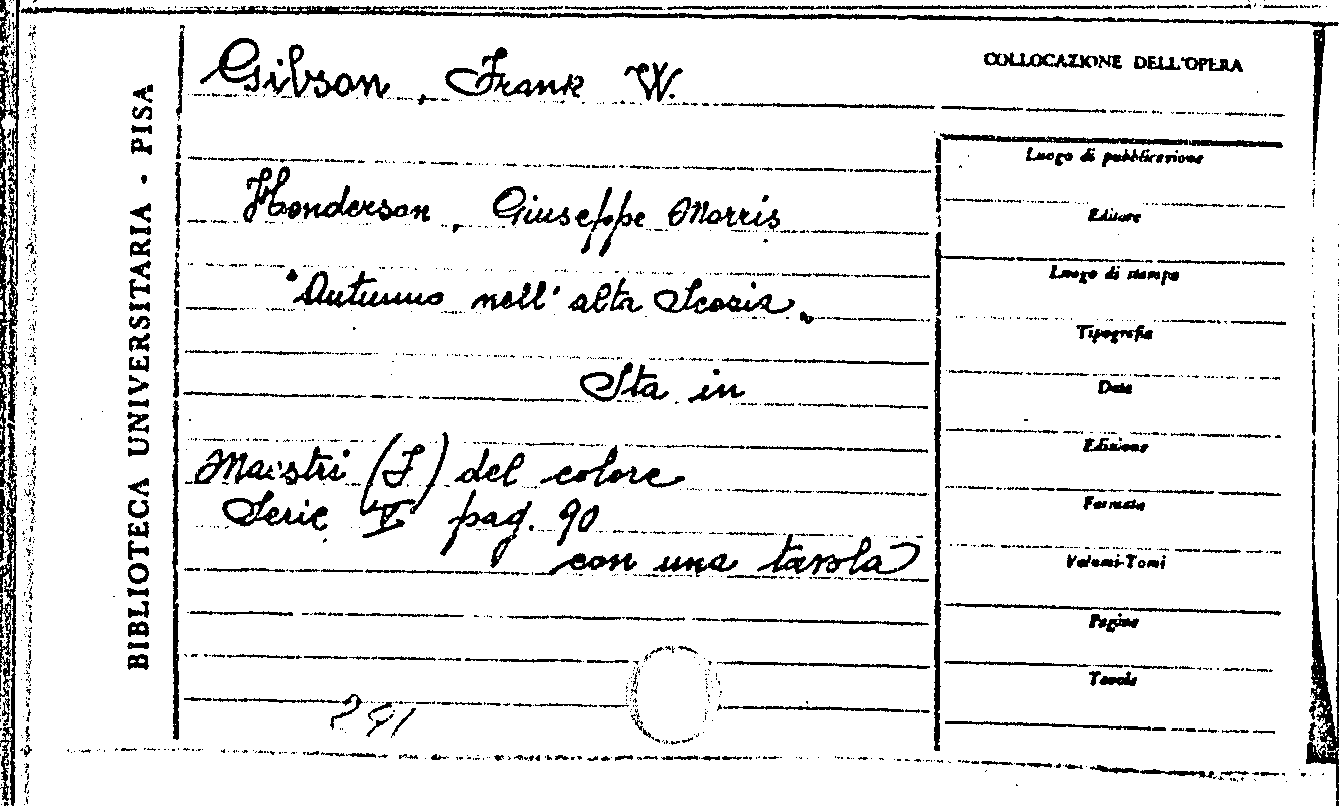 BIBLIOTECA UNIVERSITARIA - PISA
Gibson, Frank W.
Henderson, Giuseppe Morris
"Autunno nell'alta Scozia„
Sta in
Maestri (I) del colore
Serie V pag. 90
con una tavola
291
COLLOCAZIONE DELL'OPERA
Luogo di pubblicazione
Editore
Luogo di stampa
Tipografia
Data
Edizione
Formato
Volumi-Tomi
Pagine
Tavole